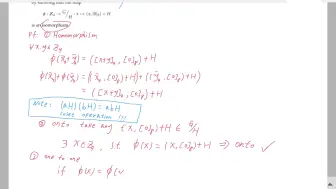 φ : Z₄ → G/H : x ↦ (x, [0]₂) + H
is an isomorphism
Pf: ① Homomorphism
∀ x, y ∈ Z₄
φ(x+y) = ([x+y]₄, [0]₂) + H
φ(x) + φ(y) = ((x, [0]₂) + H) + ((y, [0]₂) + H)
= ([x+y]₄, [0]₂) + H
Note: (aH)(bH) = abH
coset operation is
② onto take any (x, [0]₂) + H ∈ G/H
∃ x ∈ Z₄ s.t φ(x) = (x, [0]₂) + H ⇒ onto ✓
③ one to one
if φ(x) = φ(